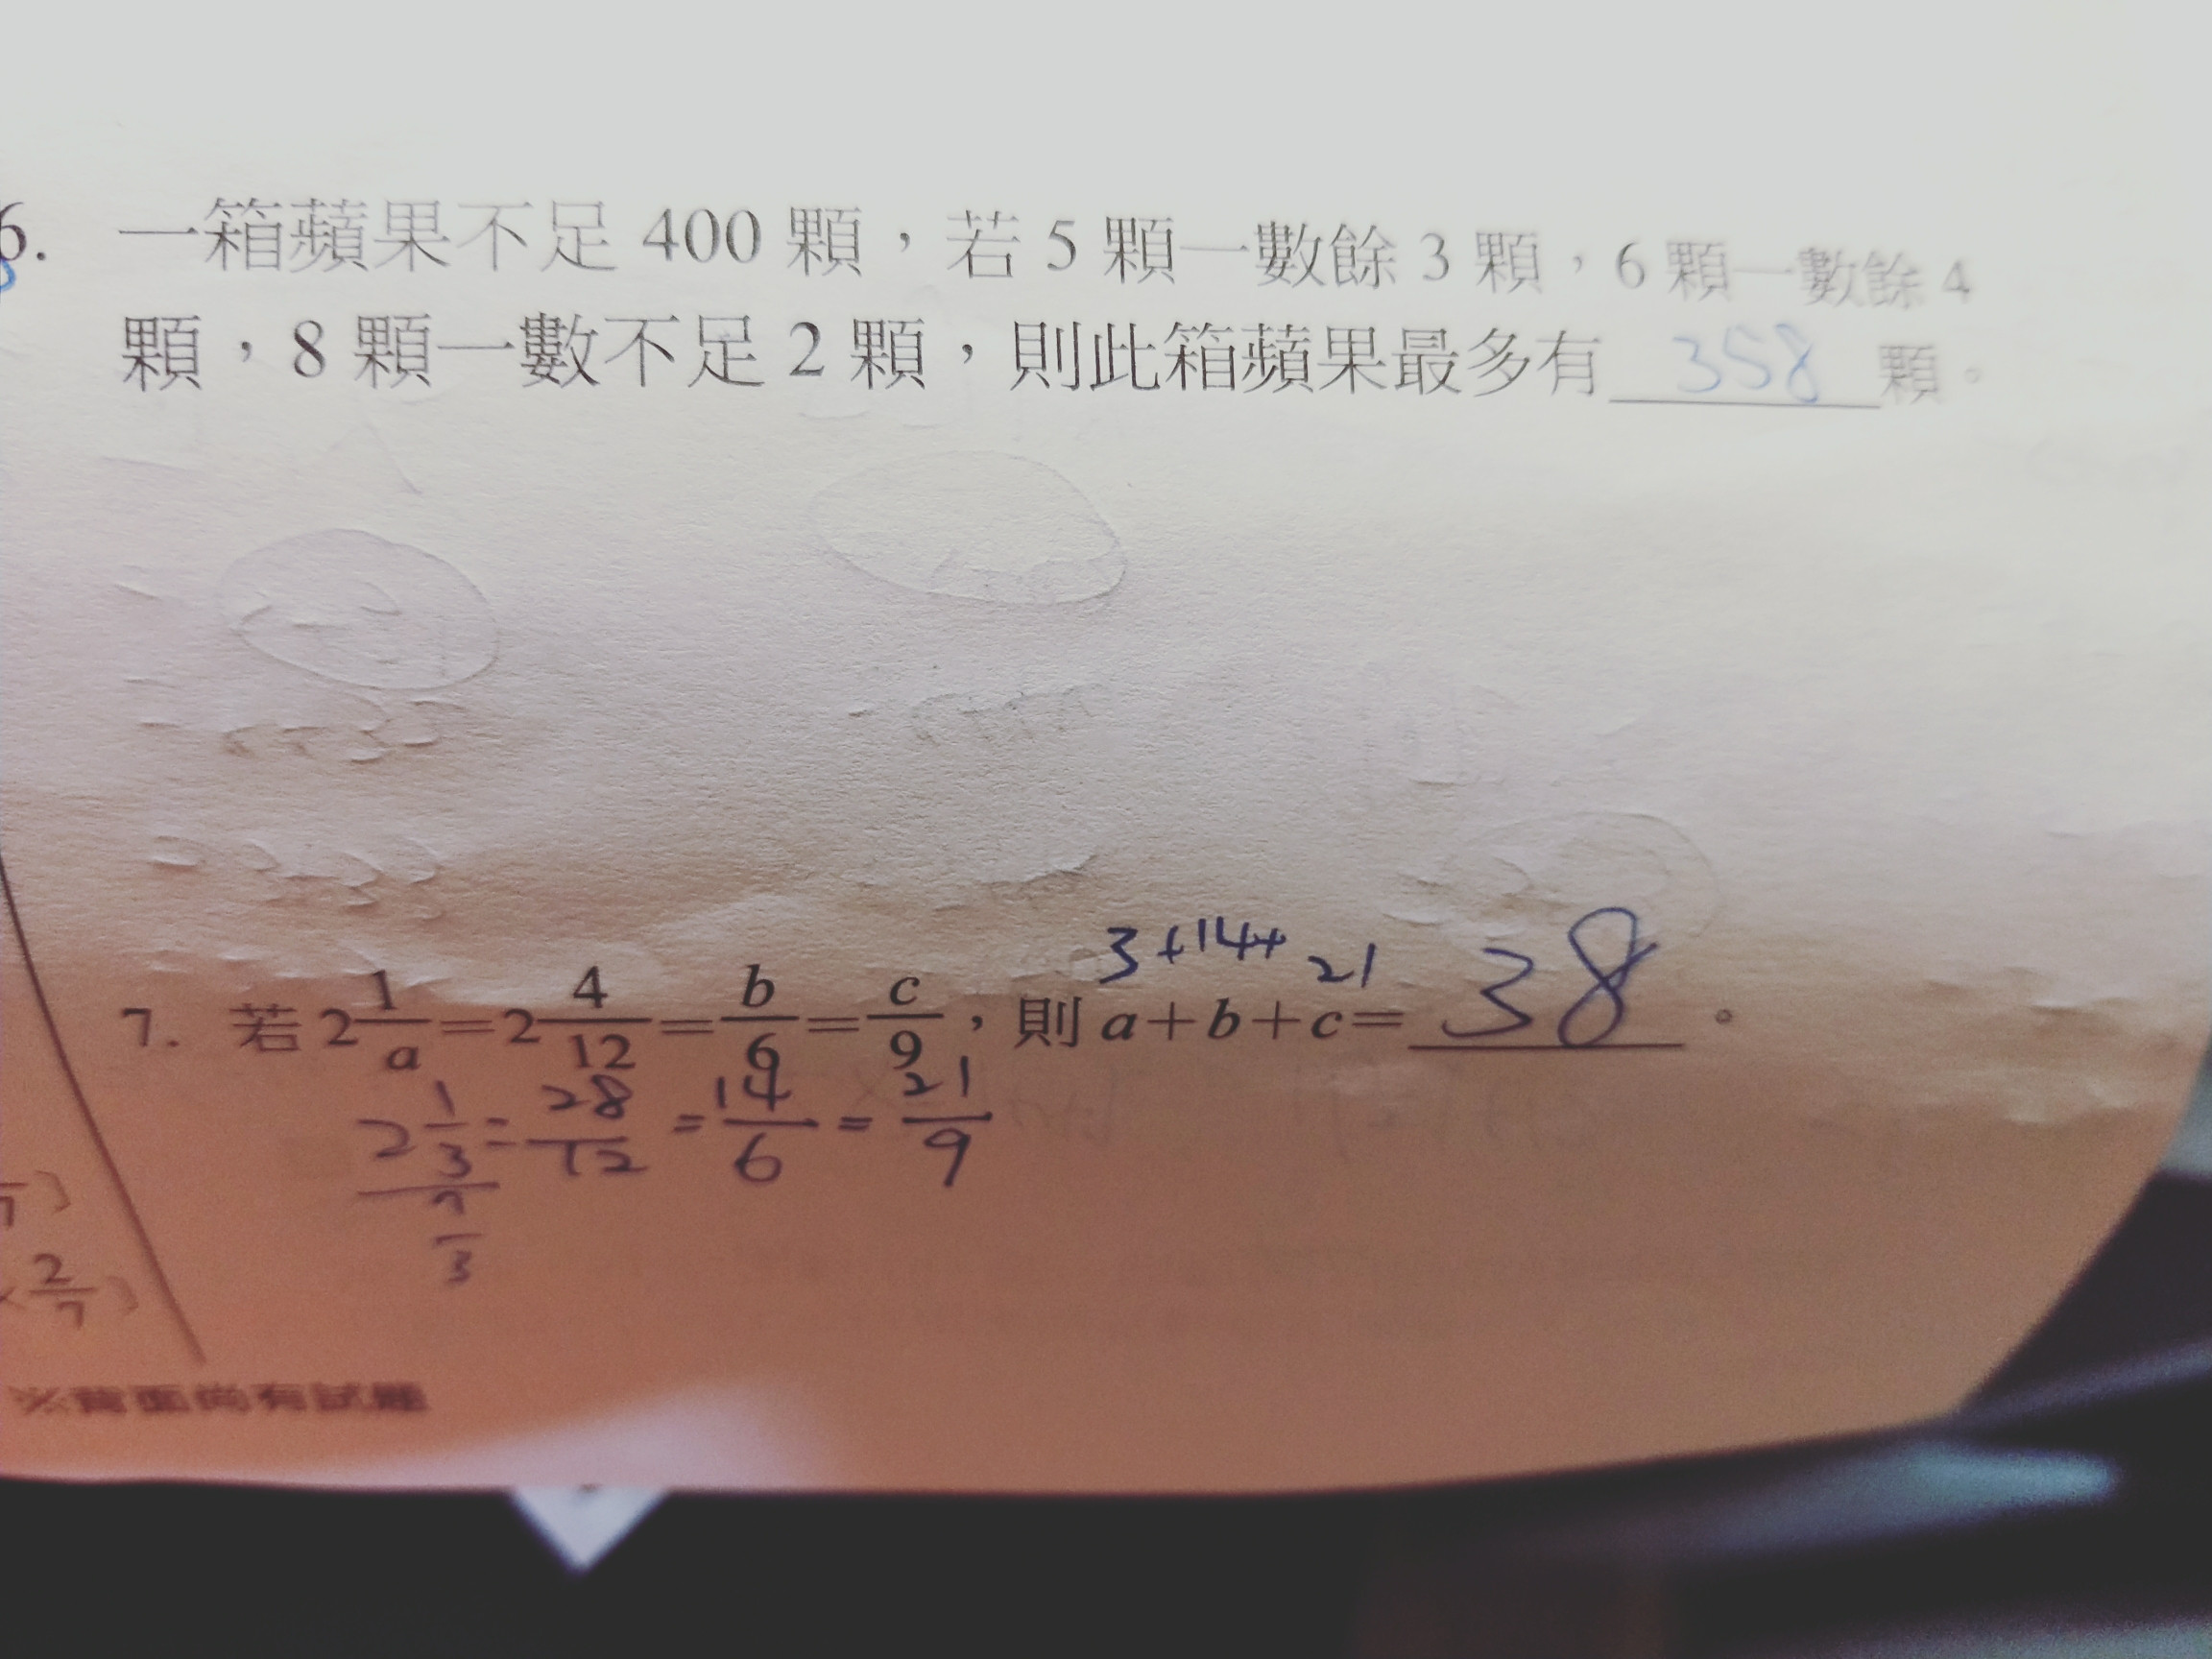 6. 一箱蘋果不足 400 顆，若 5 顆一數餘 3 顆，6 顆一數餘 4
顆，8 顆一數不足 2 顆，則此箱蘋果最多有 358 顆。
3+14+21
7. 若 2 1/a = 2 4/12 = b/6 = c/9，則 a+b+c= 38 。
2 1/3 = 28/12 = 14/6 = 21/9
7/3
2/7
※背面尚有試題